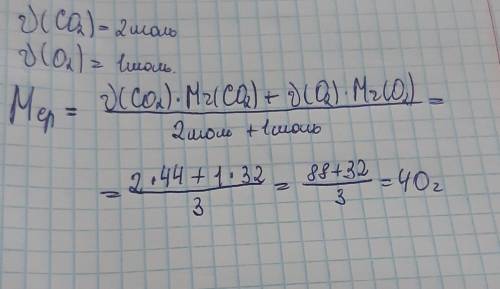 ν(CO₂) = 2моль
ν(O₂) = 1моль.
Mср = (ν(CO₂)·Mr(CO₂) + ν(O₂)·Mr(O₂)) / (2моль + 1моль) =
= (2·44 + 1·32) / 3 = (88+32) / 3 = 40г